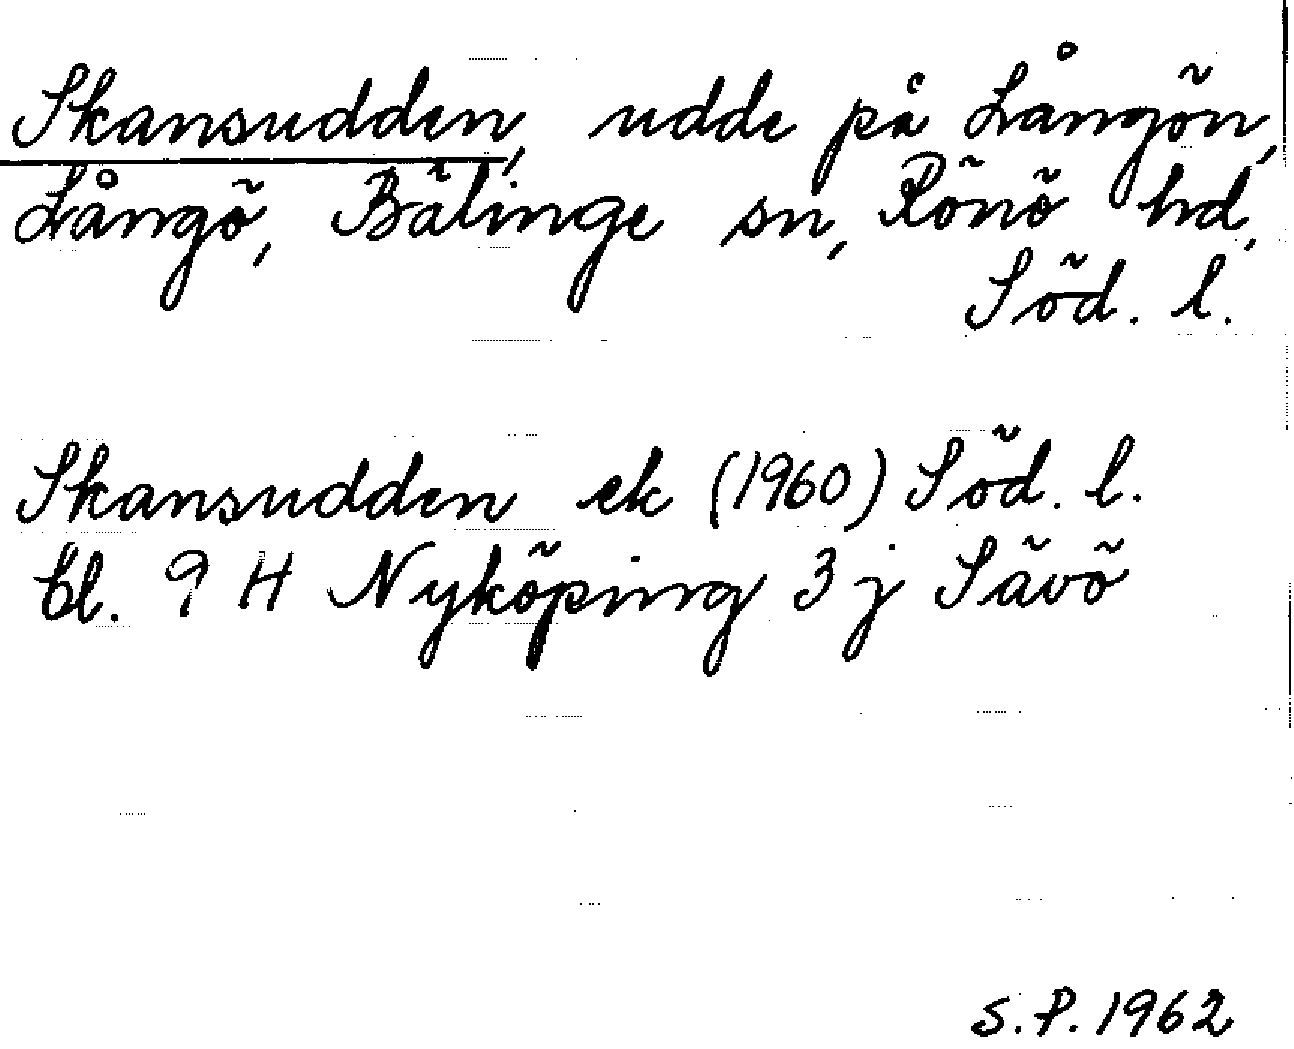 Skansudden, udde på Långön,
Långö, Bälinge sn, Rönö hd,
Söd. l.
Skansudden ek (1960) Söd. l.
bl. 9 H Nyköping 3 j Sävö
S.P. 1962